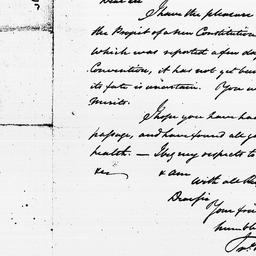 Dear Sir
I have the pleasure
the Project of a new Constitution
which was reported a few day
Convention, it has not yet be
its fate is uncertain. You w
merits.
I hope you have had
passage, and have found all go
health. — I beg my respects to
& am
with all th
Dear Sir
Your frie
humble